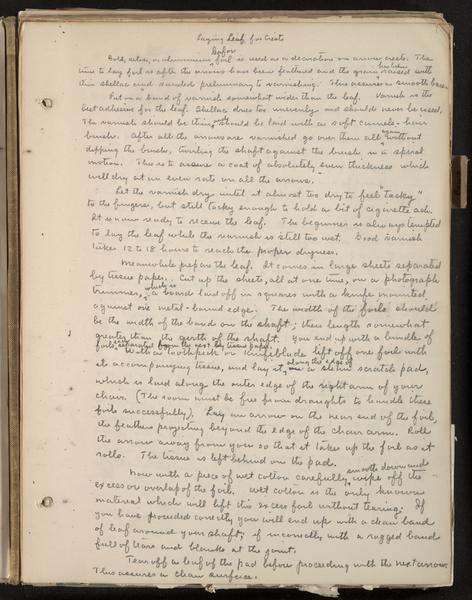 Laying Leaf for Crests
Gold, silver, or aluminium foil is used as a decoration on arrow crests. The
time to lay foil is after the arrows have been feathered and the grain has been raised with
thin shellac and sanded preliminary to varnishing. This assures a smooth base.
Put on a band of varnish somewhat wider than the leaf. Varnish is the
best adhesive for the leaf. Shellac dries too unevenly and should never be used.
The varnish should be thin, should be laid with a soft camels-hair
brush. After all the arrows are varnished go over them all without
dipping the brush, twirling the shaft against the brush in a spiral
motion. This is to assure a coat of absolutely even thickness which
will dry at an even rate on all the arrows.
Let the varnish dry until it almost too dry to feel tacky
to the fingers, but still tacky enough to hold a bit of cigarette ash.
It is now ready to receive the leaf. The beginner is always tempted
to lay the leaf while the varnish is still too wet. Good varnish
takes 12 to 18 hours to reach the proper dryness.
Meanwhile prepare the leaf. It comes in large sheets separated
by tissue paper. Cut up the sheets, all at one time, on a photograph
trimmer, which is a board laid off in squares with a knife mounted
against one metal-bound edge. The width of the foils should
be the width of the band on the shaft; their length somewhat
greater than the girth of the shaft. You end up with a bundle of
foils separated from the rest by tissue paper.
With a toothpick or knifeblade lift off one foil with
its accompanying tissue, and lay it along the edge of a steno scratch pad,
which is lined along the outer edge of the right arm of your
chair. (The room must be free from draughts to handle these
foils successfully). Lay an arrow on the near end of the foil,
the feathers projecting beyond the edge of the chair arm. Roll
the arrow away from you so that it takes up the foil as it
rolls. The tissue is left behind on the pad.
Now with a piece of wet cotton carefully smooth down and wipe off the
excess or overlap of the foil. Wet cotton is the only known
material which will lift this excess foil without tearing. If
you have proceeded correctly you will end up with a clean band
of leaf around your shaft; if incorrectly with a ragged band
full of tears and blanks at the joint.
Tear off a leaf of the pad before proceeding with the next arrow.
This assures a clean surface.